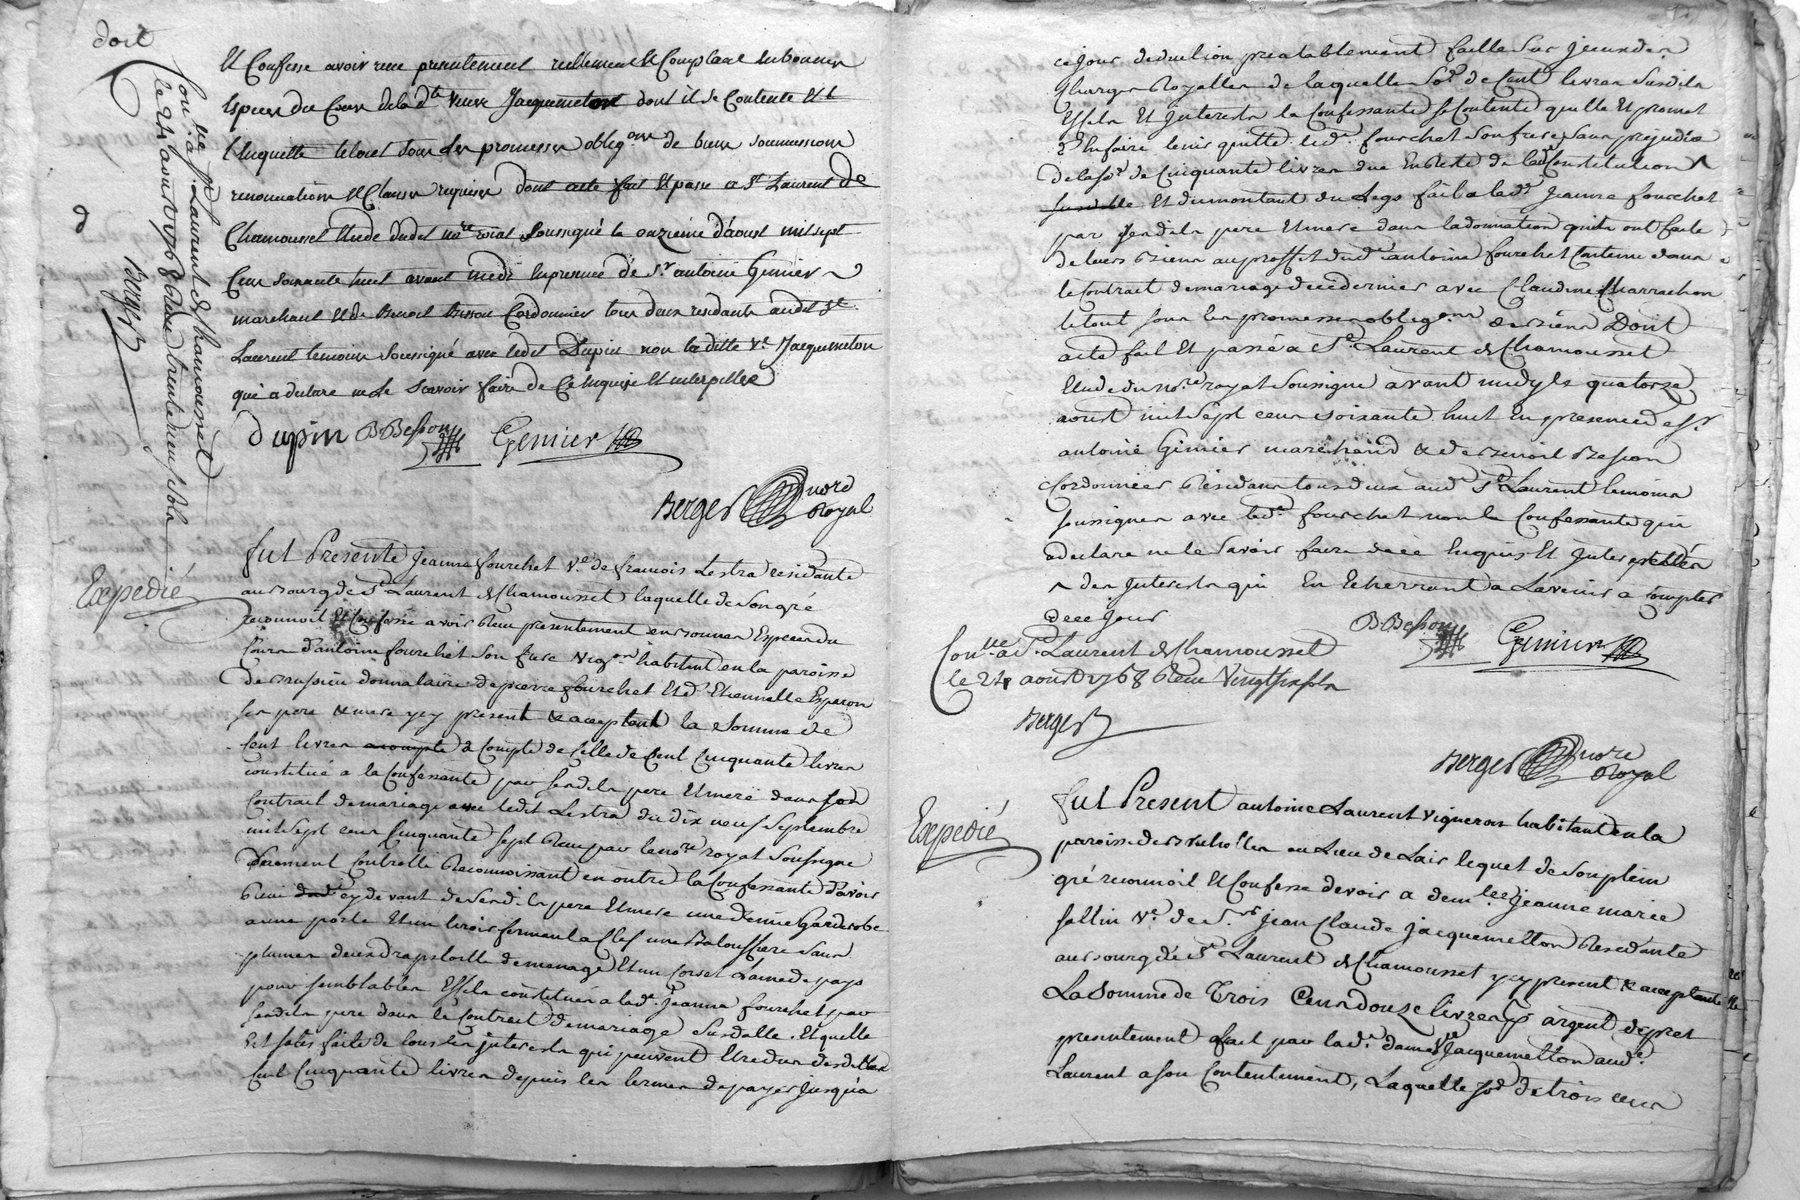 doit
Con.lle a St Laurent de chamousset
le 24 aoust 1768 Reçu trente neuf sols
Berger
Et Confesse avoir reçu presentement reellement & Comptant en bonnes
Especes du Cours de la d.te veuve Jacquemeton dont il se Contente et
l'en quitte le tout sous les promesses oblig.ons de biens soumissions
renonciations et Clauses requises dont acte fait et passé a St Laurent de
Chamousset etude dudit no.re roial soussigné le onzieme d'aoust mil sept
Cent soixante huit avant midi en presence de s.r antoine Gimier
marchand et de Benoit Besson Cordonnier tous deux residants audit St
Laurent temoins soussignés avec ledit Dupin non la ditte v.e Jacquemeton
qui a declaré ne le scavoir faire de Ce enquise et interpellée
dupin B Besson Gemier
Berger no.re Royal
Expedié
fut Presente Jeanne fourchet v.e de francois Lestra residante
au bourg de St Laurent de Chamousset laquelle de son gré
reconnoit et Confesse avoir Reçu presentement en bonnes Especes du
Cours d'antoine fourchet son frere vig.on habitant en la paroisse
de Brussieu donnataire de pierre fourchet et d'Etiennette Esparon
ses pere & mere y cy present & acceptant la somme de
Cent livres a compte de celle de Cent Cinquante livres
constitué a la Confessante par sesdits pere et mere dans son
Contrait de mariage avec ledit Lestra du dix neuf Septembre
mil sept cent Cinquante sept Reçu par le no.re royal soussigné
Deuement Controllé Reconnoissant en outre la Confessante d'avoir
Reçu cy devant de sesdits pere et mere une demie Garderobe
a une porte et un tiroir fermant a Clef une Baloussiere sans
plumes deux draps toille de menage et un Corset Lame de pays
pour semblables Effets constitués a lad.e Jeanne fourchet par
sesdits pere dans le Contrait de mariage susdatté. Et quelle
Est satisfaite de tous les interests qui peuvent etre dus desdittes
Cent Cinquante livres depuis les termes de payer Jusqu'a
ce jour deduction prealablement faitte sur jceux des
Charges Royalles de laquelle So.e de Cent livres susdits
Effets Et jnterests la Confessante se Contente quitte Et promet
En faire tenir quitte led.t fourchet son frere sans prejudice
de la So.e de Cinquante livres due En Reste de lad.e Constitution ^
Et du montant du Legs fait a lad.e Jeanne fourchet
par sesdits pere Et mere dans la donnation qu'ils ont faite
de leurs Biens au proffit dud.t antoine fourchet Contenue dans
le Contrait de mariage de ce dernier avec Claudine Charrachon
le tout sous les promesses oblig.ons de Biens Dont
acte fait Et passé a St Laurent de Chamousset
Etude du no.re royal soussigné avant midy le quatorze
aoust mil sept cent soixante huit En presence de s.r
antoine Gimier marchand & de Benoit Besson
Cordonnier Residants tous deux aud.t St Laurent temoins
soussignés avec led.t fourchet non la Confessante qui
a declaré ne le Savoir faire de ce Enquise Et jnterpellée
^ des jnterests qui En Echerront a L'avenir a compter
de ce Jour
B Besson Gemier
Con.lle a St Laurent de Chamousset
le 24 aoust 1768 Reçu Vingt six sols
Berger
Berger no.re Royal
Expedié
fut Present antoine Laurent vigneron habitant en la
paroisse de Brulholles au Lieu de Lair lequel de son plein
gré reconnoit Et Confesse devoir a dem.lle Jeanne marie
V.e de S.r jean Claude jacquemetton Residante
au bourg de St Laurent de Chamousset y cy presente & acceptante
La somme de Trois Cents douze livres argent de pret
presentement fait par lad.e dame v.e Jacquemetton aud.t
Laurent a son Contentement, Laquelle so.e de trois cents